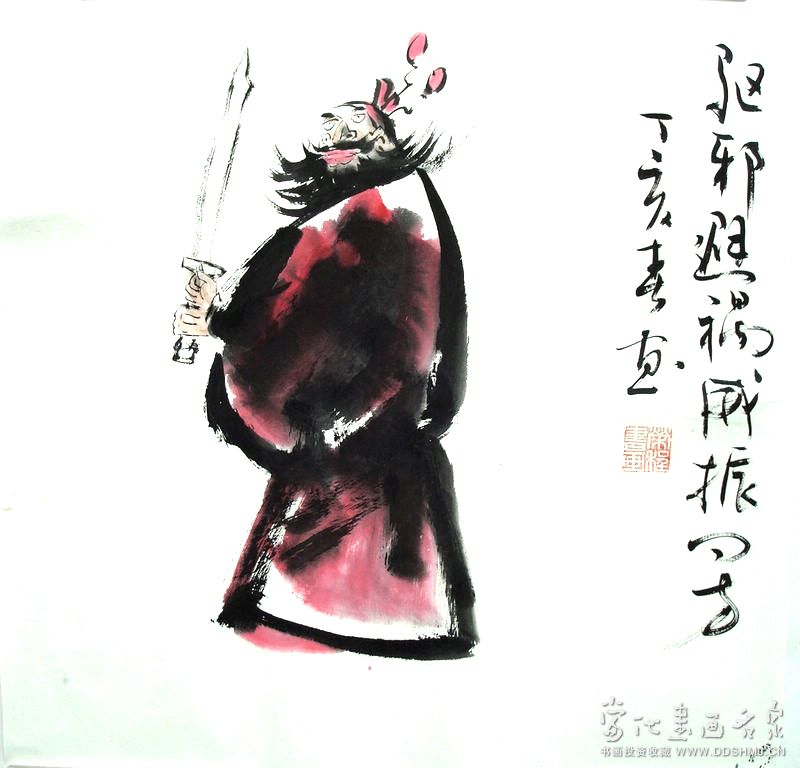 驱邪避祸威振四方
丁亥春画
当代书画名家
书画投资收藏 WWW.DDSHMJ.CN